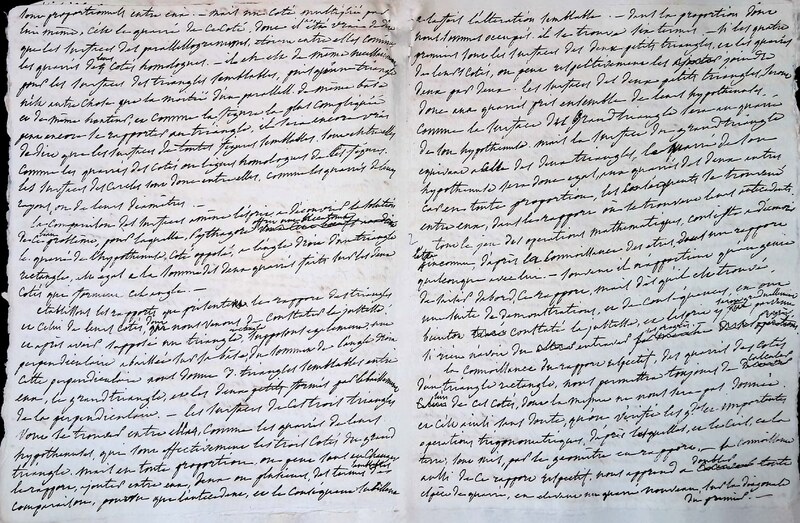 sont proportionnels entre eux. — mais un coté multiplié par
lui même, c'est le quarré de ce coté. donc il est vrai de dire
que les surfaces des parallelogrammes, etoient entre elles comme
les quarrés de leurs cotés homologues. — il en est de même
pour les surfaces des triangles semblables, puisqu'un triangle
n'est autre chose que la moitié d'un parallel. de même base
et de même hauteur, et comme la figure la plus compliquée
peut encore se rapporter au triangle, il sera encore vrai
de dire que les surfaces de toutes figures semblables, sont entre elles
comme les quarrés des cotés ou lignes homologues de ces figures.
les surfaces des cercles sont donc entre elles, comme les quarrés de leurs
rayons, ou de leurs diametres. —
la comparaison des surfaces amene l'esprit a decouvrir la solution
problême, pour laquelle, Pythagore
le quarré de l'hypothenuse, coté opposé, a l'angle droit d'un triangle
rectangle, est egal a la somme des deux quarrés faits sur les deux
cotés qui forment cet angle. —
etablissons les rapports que présentent le rapport des triangles
et celui de leurs cotés, que nous venons de constater la justesse.
et après avoir supposé un triangle supposons également une
perpendiculaire abaissée sur sa base, du sommet de l'angle droit
cette perpendiculaire nous donne 3 triangles semblables entre
eux, le grand triangle, et les deux petits formés par l'abaissement
de la perpendiculaire. — les surfaces de ces trois triangles
vont se trouver entre elles, comme les quarrés de leurs
hypothenuses, qui sont effectivement les trois cotés du grand
triangle. mais en toute proportion on peut sans en changer
le rapport, ajouter entre eux, deux ou plusieurs des termes
comparaison, pourvu que l'antecedent, et le consequent subissent
a la fois l'alteration semblable. — dans la proportion dont
nous sommes occupés il se trouve six termes. — si les quatre
premiers sont les surfaces des deux petits triangles, et les quarrés
de leurs cotés, on peut respectivement les joindre
deux par deux. les surfaces des deux petits triangles seront
donc aux quarrés pris ensemble de leurs hypothenuses,
comme la surface du grand triangle sera au quarré
de son hypothenuse. mais la surface du grand triangle
equivaut a celle des deux triangles, le quarré de son
hypothenuse sera donc egal aux quarrés des deux autres
car en toute proportion, les consequents se trouvent
entre eux, dans le rapport où se trouvent leurs antecedents.
tout le jeu des operations mathematiques, consiste a decouvrir
l'inconnue, d'après la connoissance des etres dans un rapport
quelconque avec lui — souvent il n'appartient qu'au genie
de saisir d'abord, ce rapport, mais dès qu'il est trouvé
une suite de demonstrations, et de consequences, en ont
bientot constaté la justesse, et l'esprit
si rien n'avoit du
la connoissance du rapport respectif, des quarrés des cotés
d'un triangle rectangle, nous permettra toujours de calculer
de ces cotés, dont la mesure ne nous sera pas donnée.
et c'est ainsi sans doute, qu'on verifie les plus importantes
operations trigonometriques, d'après lesquelles, et le ciel, et la
terre, sont mis par le geometre en rapport. — la connoissance
aussi de ce rapport respectif, nous apprend a doubler toute
espèce de quarré, en elevant un quarré nouveau sur la diagonale
du premier. —